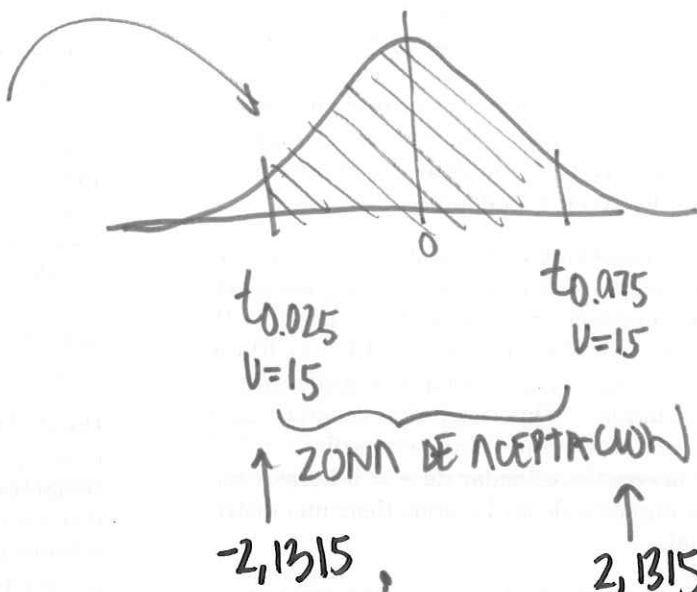 0
t0.025 t0.975
ν=15 ν=15
ZONA DE ACEPTACION
-2,1315 2,1315